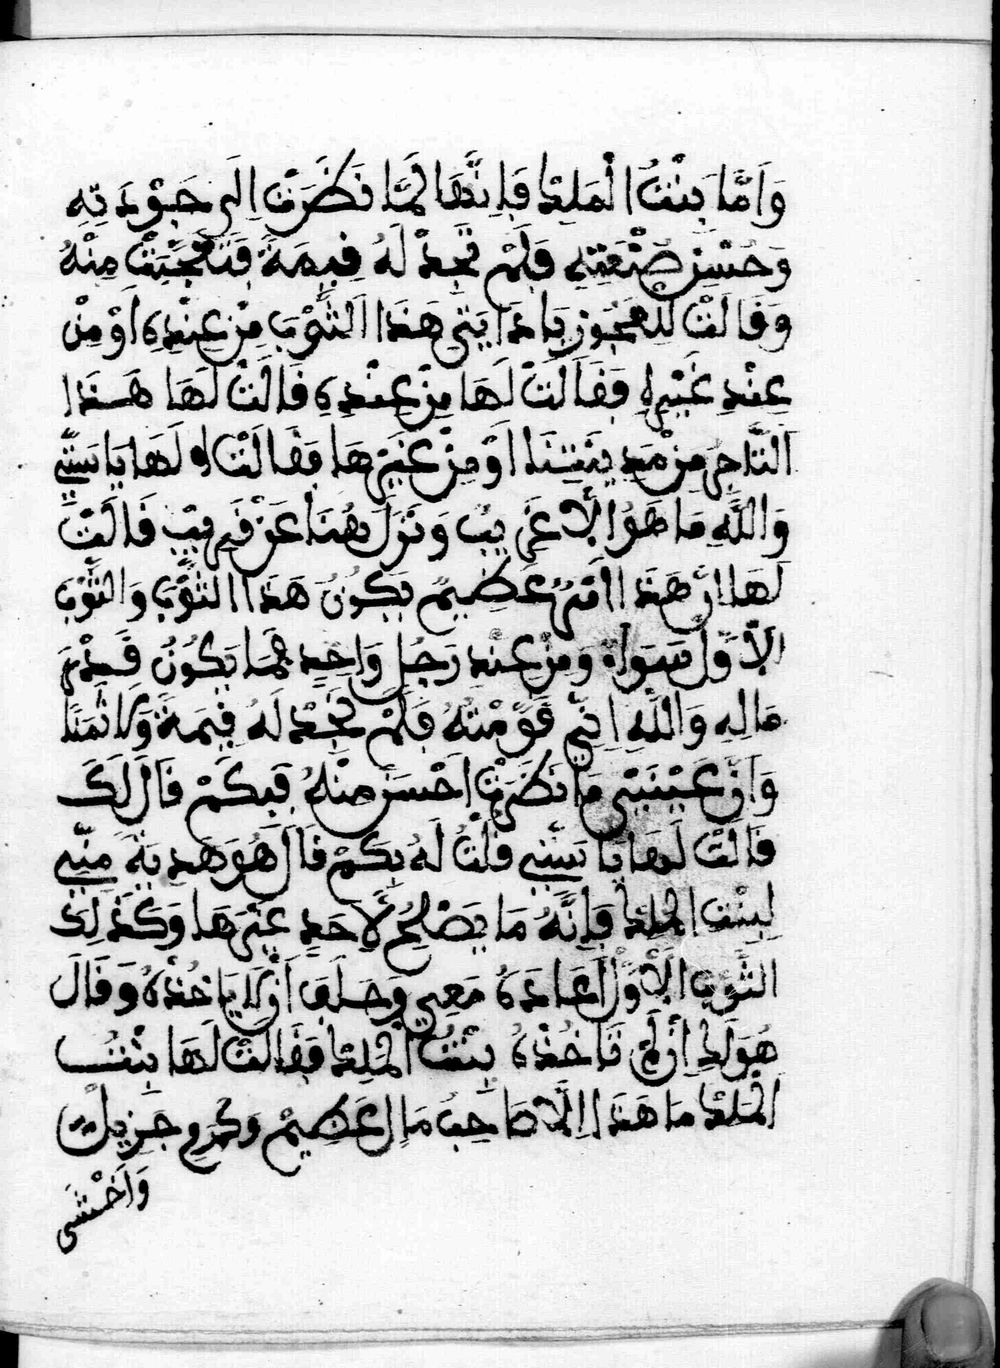 وَاَمَّا بِنْتُ الْمَلِكِ فَاِنَّهَا لَمَّا نَظَرَتْ اِلَى جَوْدَتِهِ
وَحُسْنِ صُنْعَتِهِ فَلَمْ تَجِدْ لَهُ قِيمَةً فَتَعَجَّبَتْ مِنْهُ
وَقَالَتْ لِلْعَجُوزِ يَا دَايَتِي هَذَا الثَّوْبُ مِنْ عِنْدِهِ اَوْ مِنْ
عِنْدِ غَيْرِهِ فَقَالَتْ لَهَا مِنْ عِنْدِهِ قَالَتْ لَهَا هَذَا
التَّاجِرُ مِنْ مَدِينَتِنَا اَوْ مِنْ غَيْرِهَا فَقَالَتْ لَهَا يَا سَتِّي
وَاللَّهِ مَا هُوَ اِلَّا غَرِيبٌ وَنَزَلَ هُنَا عَنْ قَرِيبٍ قَالَتْ
لَهَا اِنَّ هَذَا اَمْرٌ عَظِيمٌ يَكُونُ هَذَا الثَّوْبُ وَالثَّوْبُ
الْاَوَّلُ سَوَاءً وَمِنْ عِنْدِ رَجُلٍ وَاحِدٍ فَمَا يَكُونُ قَدْرُ
مَالِهِ وَاللَّهِ اِنِّي قَوَّمْتُهُ فَلَمْ نَجِدْ لَهُ قِيمَةً وَلَا ثَمَنًا
وَاَنَّ عَيْنَيَّ مَا نَظَرَتْ اَحْسَنَ مِنْهُ فَبِكَمْ قَالَ لَكِ
قَالَتْ لَهَا يَا سَتِّي قُلْتُ لَهُ بِكَمْ قَالَ هُوَ هَدِيَةٌ مِنِّي
لِبِنْتِ الْمَلِكِ فَاِنَّهُ مَا يَصْلُحُ لِاَحَدٍ غَيْرِهَا وَكَذَلِكَ
الثَّوْبُ الْاَوَّلُ اَعَادَهُ مَعِي وَحَلَفَ اَنْ لَا يَاخُذَهُ وَقَالَ
هُوَ لَكِ اِنْ لَمْ تَاخُذْهُ بِنْتُ الْمَلِكِ فَقَالَتْ لَهَا بِنْتُ
الْمَلِكِ مَا هَذَا اِلَّا صَاحِبُ مَالٍ عَظِيمٍ وَكَرَمٍ جَزِيلٍ
وَاَخْشَى